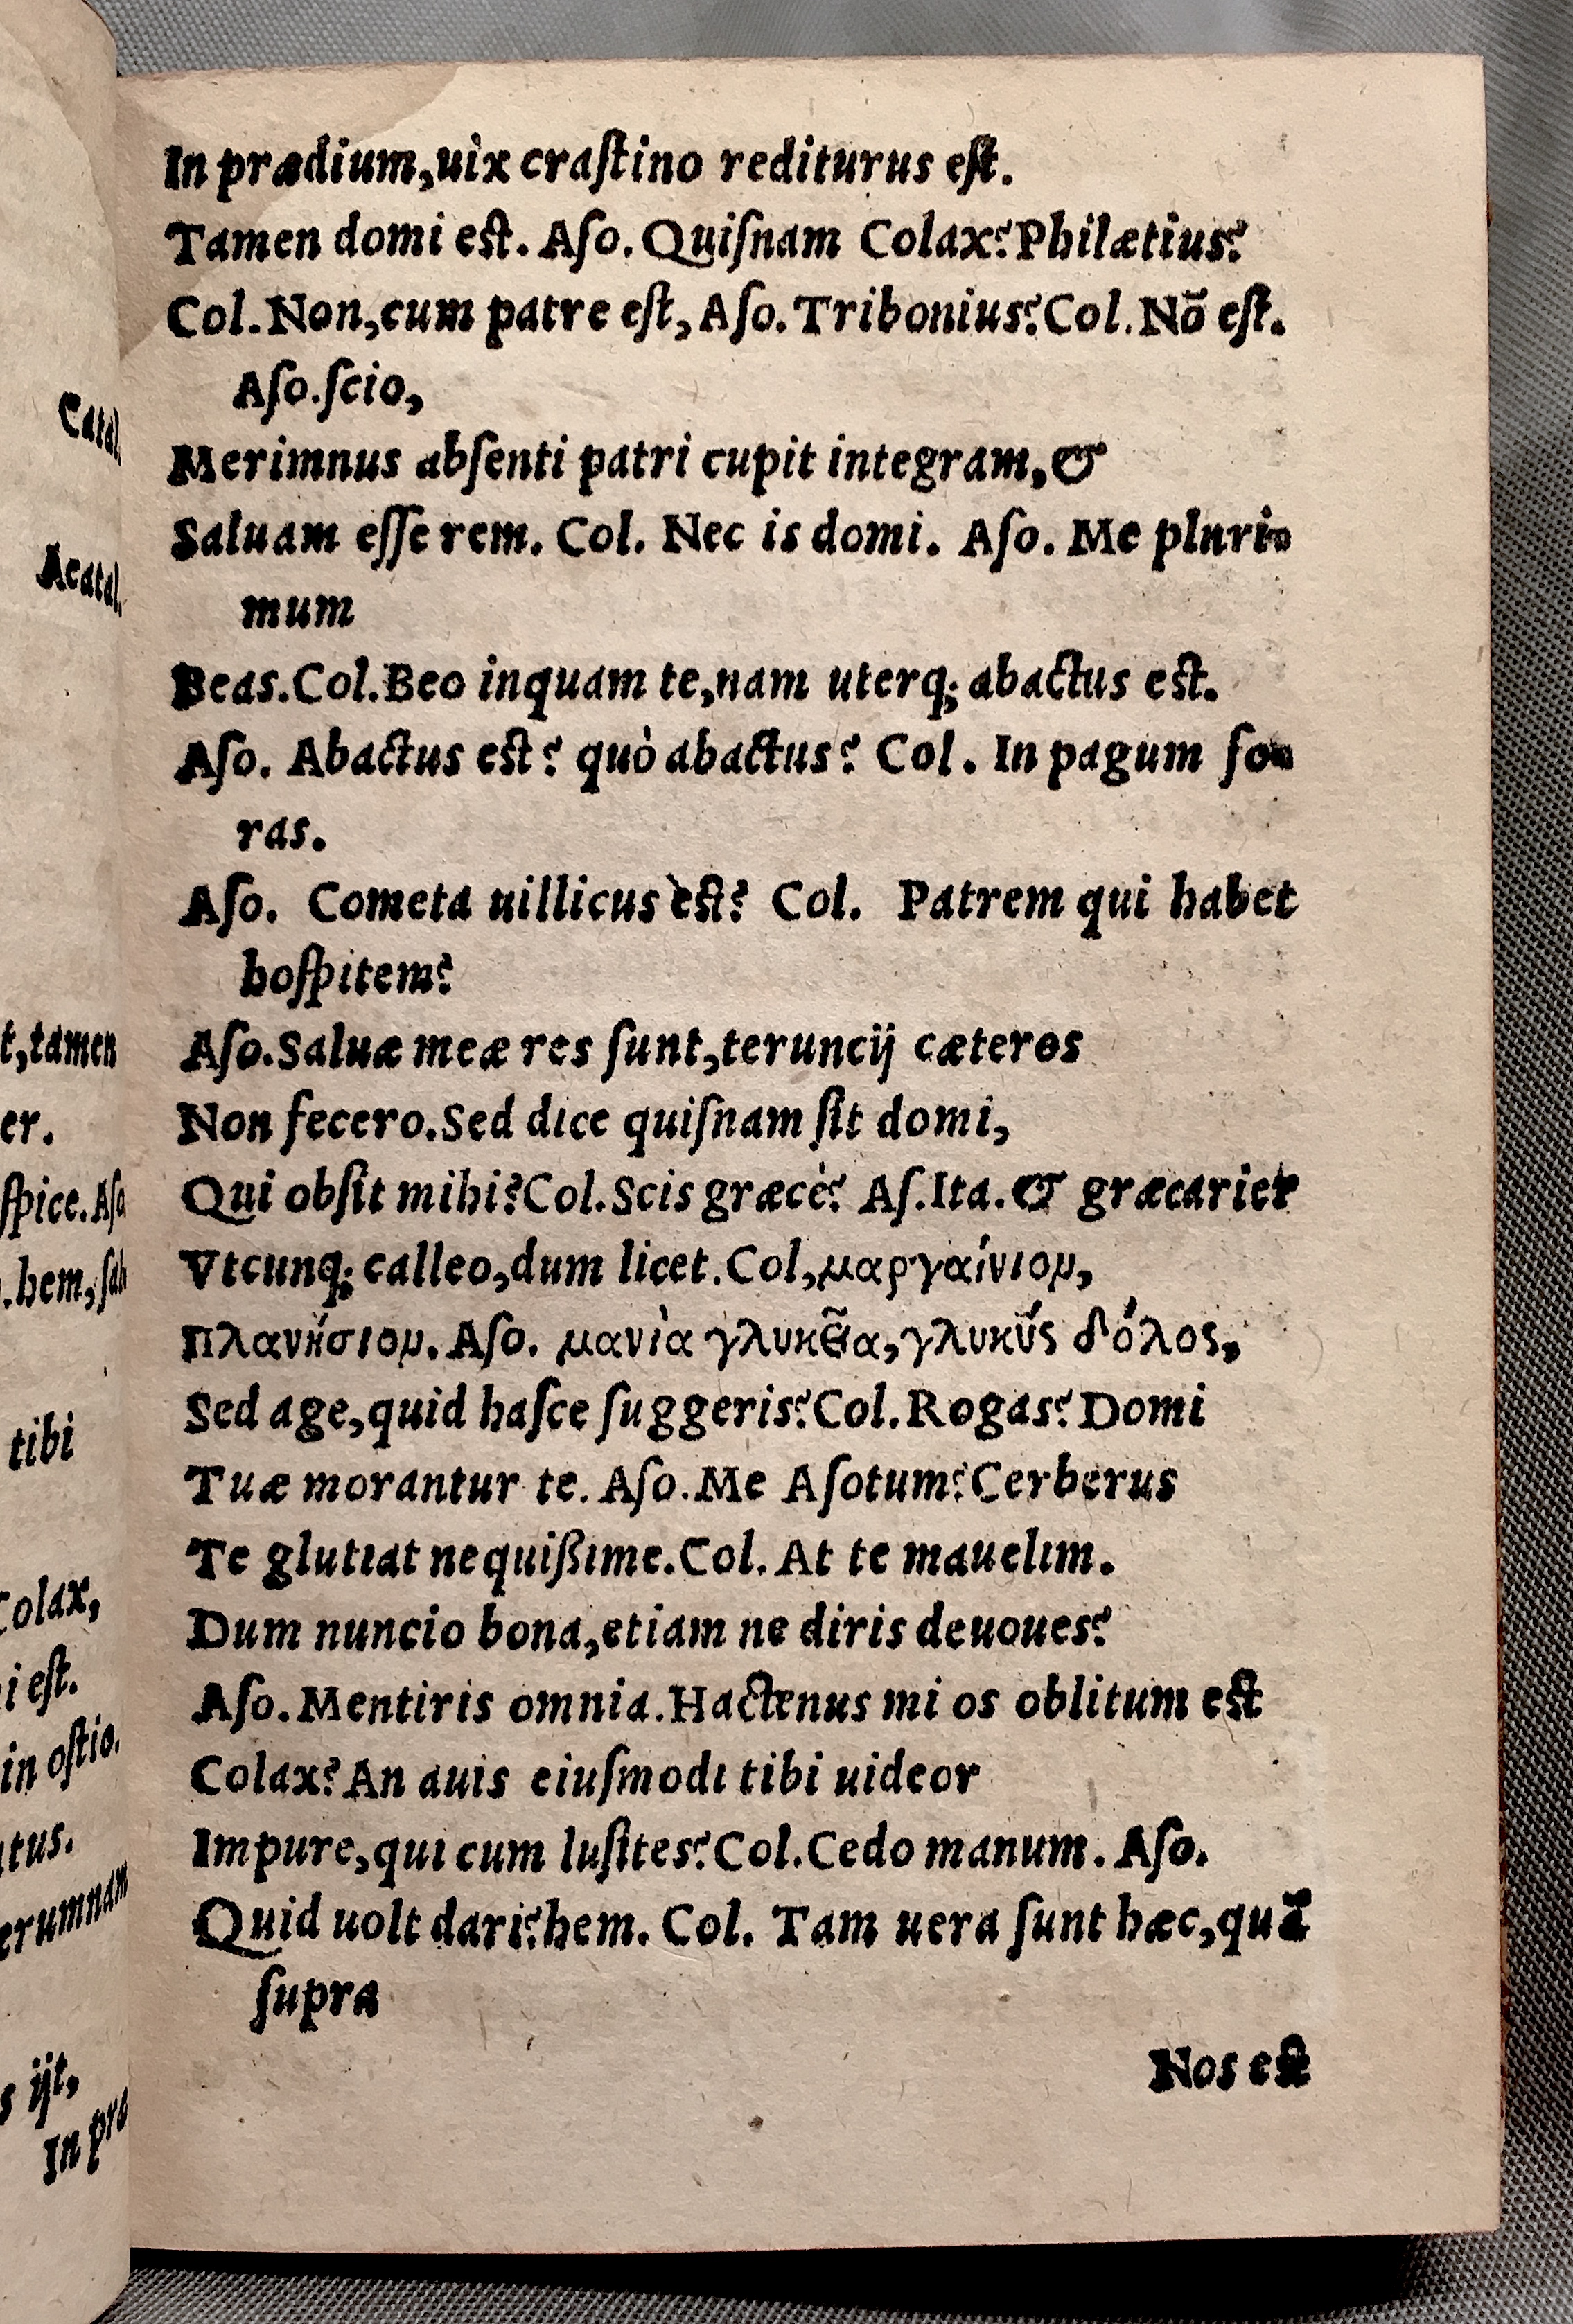 In prædium,uìx craſtino rediturus eſt.
Tamen domi eſt. Aſo. Quiſnam Colax? Philætius?
Col. Non, cum patre eſt, Aſo. Tribonius? Col. Nõ eſt.
Aſo. ſcio,
Merimnus abſenti patri cupit integram, &
Saluam eſſe rem. Col. Nec is domi. Aſo. Me pluri-
mum
Beas. Col. Beo inquam te, nam uterq; abactus eſt.
Aſo. Abactus eſt? quò abactus? Col. In pagum fo-
ras.
Aſo. Cometa uillicus èſt? Col. Patrem qui habet
hoſpitem?
Aſo. Saluæ meæ res ſunt, teruncij cæteros
Non fecero. Sed dice quiſnam ſit domi,
Qui obſit mihi? Col. Scis græcè? Aſ. Ita. & græcarier
Vtcunq; calleo, dum licet. Col, μαργαίνιομ,
Πλανήσιομ. Aſo. μανὶα γλυκεῖα, γλυκύς δόλος,
Sed age, quid haſce ſuggeris? Col. Rogas? Domi
Tuæ morantur te. Aſo. Me Aſotum? Cerberus
Te glutiat nequißime. Col. At te mauelim.
Dum nuncio bona, etiam ne diris deuoues?
Aſo. Mentiris omnia. Hactenus mi os oblitum eſt
Colax? An auis eiuſmodi tibi uideor
Impure, qui cum luſites? Col. Cedo manum. Aſo.
Quid uolt dari? hem. Col. Tam uera ſunt hæc, quã
ſupra
Nos eſt
Catal.
Acatal.
t, tamen
er.
ſpice. Aſo
. hem, ſal
tibi
Colax,
i eſt.
in oſtio.
tus.
erumnam
s ijt,
In præ